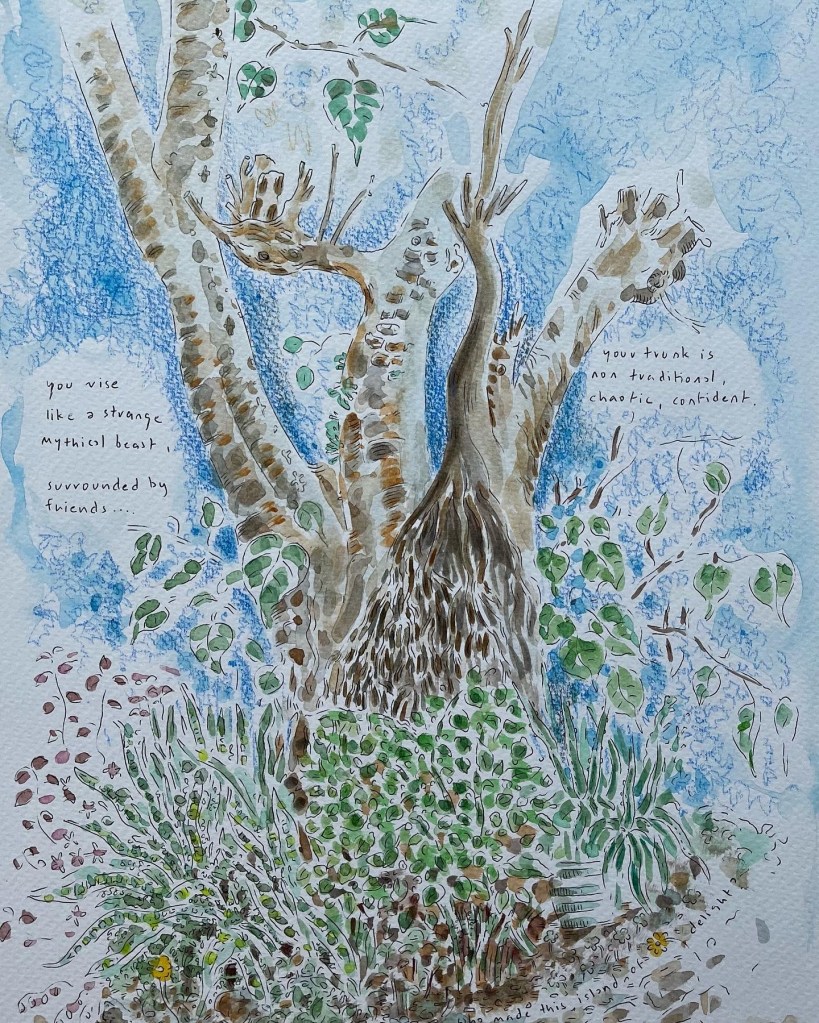 you rise
like a strange
mythical beast,
surrounded by
friends....
your trunk is
non traditional,
chaotic, confident.
who made this island of delight?